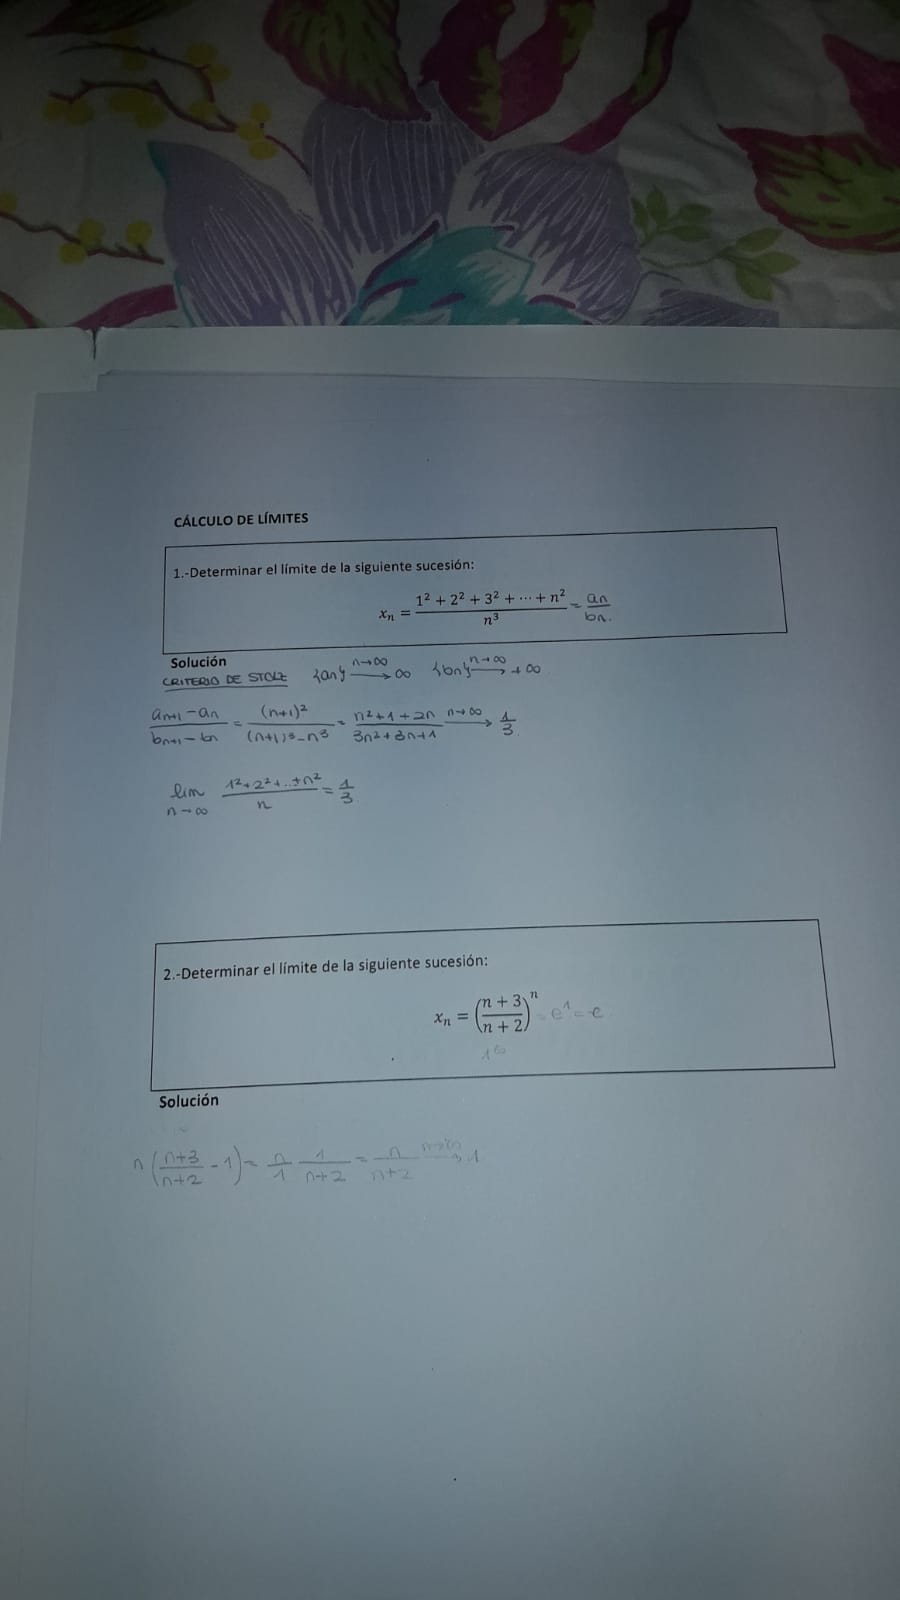 CÁLCULO DE LÍMITES
1.-Determinar el límite de la siguiente sucesión:
xₙ = (1² + 2² + 3² + ⋯ + n²)/n³ = an/bn.
Solución
CRITERIO DE STOLZ {an} n→∞ → ∞ {bn} n→∞ → +∞
(an+1 - an)/(bn+1 - bn) = (n+1)²/((n+1)³ - n³) = (n²+1+2n)/(3n²+3n+1) n→∞ → 1/3
lim n→∞ (1²+2²+..+n²)/n = 1/3
2.-Determinar el límite de la siguiente sucesión:
xₙ = ((n + 3)/(n + 2))ⁿ = e¹ = e
1^∞
Solución
n((n+3)/(n+2) - 1) = n/1 1/(n+2) = n/(n+2) n→∞ → 1